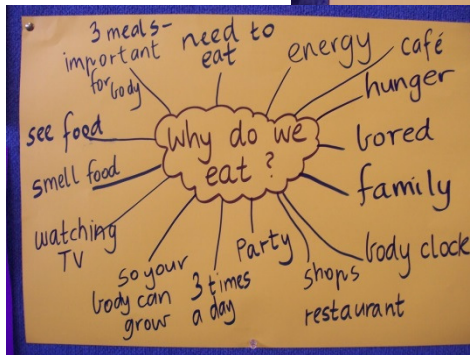 3 meals-
important
for body
need to
eat
energy
café
hunger
bored
family
body clock
shops
restaurant
Party
3 times
a day
so your
body can
grow
watching
TV
smell food
see food
Why do we
eat?